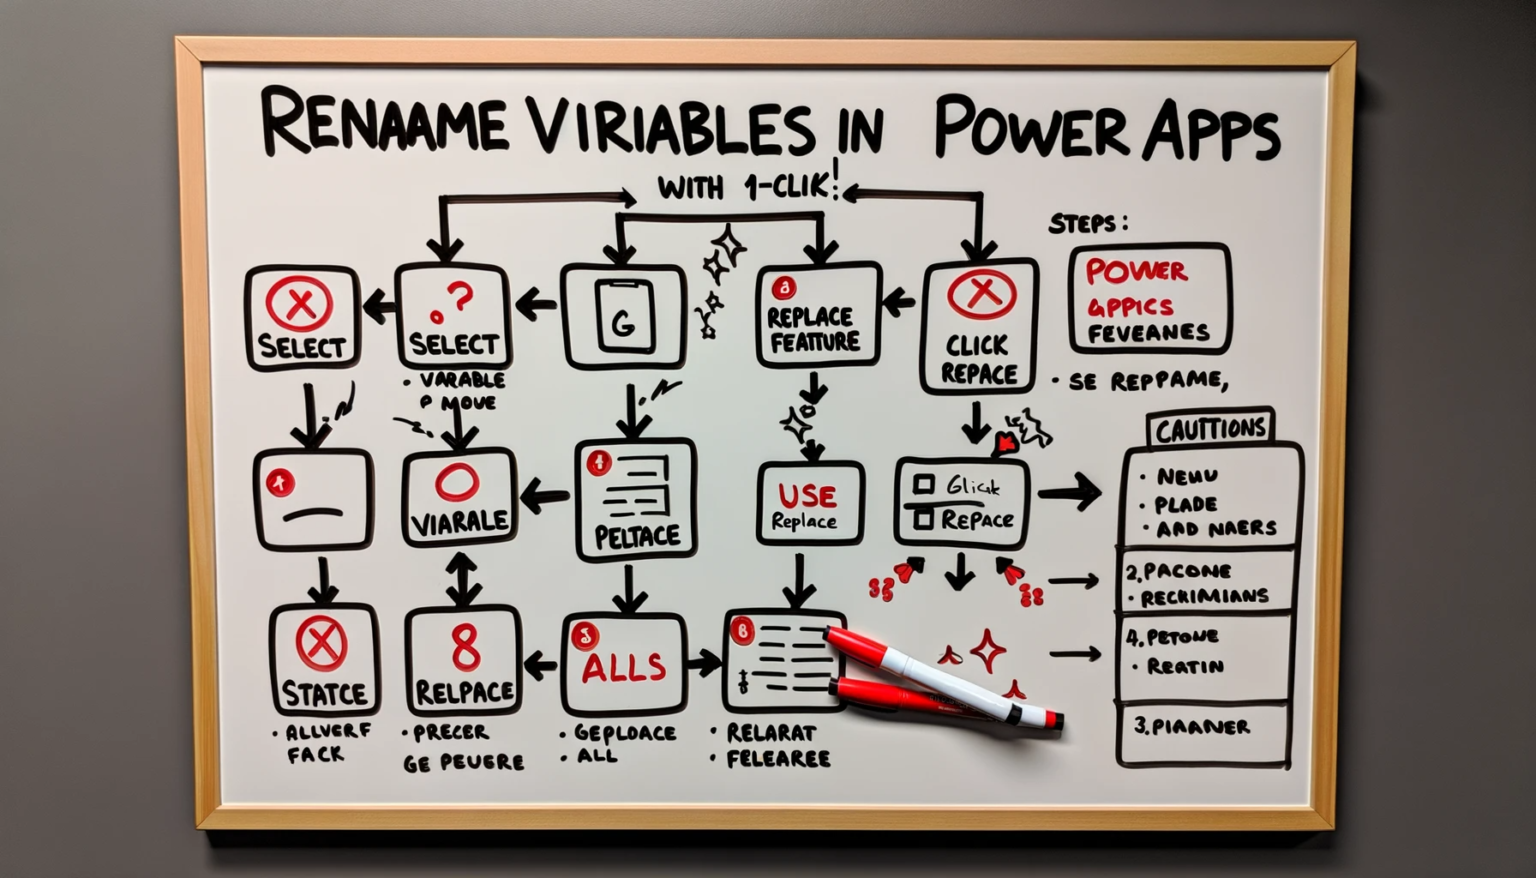 RENAAME VIRIABLES IN POWER APPS
WITH 1-CLIK!
STEPS:
SELECT
? SELECT
• VARABLE
P MOVE
G
REPLACE
FEATTURE
CLICK
REPACE
POWER
APPICS
FEVEANES
• SE REPPAME,
VIARALE
PELTACE
USE
Replace
Glick
REPACE
CAUTTIONS
• NEWU
• PLADE
• AND NAERS
2. PACONE
• RECKIMIANS
4. PETONE
• REATIN
3. PIAANER
STATCE
• ALLVERF
FACK
8
RELPACE
• PRECER
GE PEUERE
ALLS
• GEPLOACE
• ALL
• RELARAT
• FELEAREE